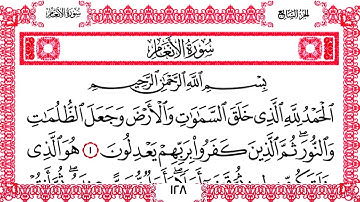 سورة الأنعام
الجزء السابع
سُورَةُ الأَنْعَامِ
بِسْمِ اللَّهِ الرَّحْمَٰنِ الرَّحِيمِ
الْحَمْدُ لِلَّهِ الَّذِي خَلَقَ السَّمَاوَاتِ وَالْأَرْضَ وَجَعَلَ الظُّلُمَاتِ
وَالنُّورَ ثُمَّ الَّذِينَ كَفَرُوا بِرَبِّهِمْ يَعْدِلُونَ ١ هُوَ الَّذِي
١٢٨